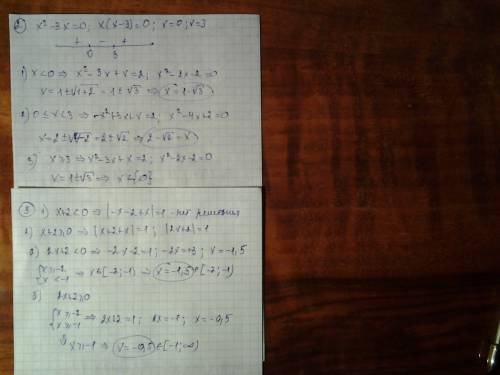 2) x² - 3x = 0; x(x-3) = 0; x = 0; x = 3
+ - +
0 3
1) x < 0 ⇒ x² - 3x + x = 2; x² - 2x - 2 = 0
x = 1 ± √1+2 = 1 ± √3 ⇒ x = 1 - √3
2) 0 ≤ x < 3 ⇒ -x² + 3x + x = 2; x² - 4x + 2 = 0
x = 2 ± √4-2 = 2 ± √2 ⇒ 2 - √2 = x
3) x ≥ 3 ⇒ x² - 3x + x = 2; x² - 2x - 2 = 0
x = 1 ± √3 ⇒ x ∈ {∅}
3) 1) x+2 < 0 ⇒ |-x-2+x| = 1 - нет решения
2) x+2 ≥ 0 ⇒ |x+2+x| = 1; |2x+2| = 1
2) 2x+2 < 0 ⇒ -2x-2 = 1; -2x = 3; x = -1,5
{x ≥ -2 x < -1 ⇒ x ∈ [-2; -1) ⇒ x = -1,5 ∈ [-2; -1)
3) 2x+2 ≥ 0
{x ≥ -2 x ≥ -1 ⇒ 2x+2 = 1; 2x = -1; x = -0,5
x ≥ -1 ⇒ x = -0,5 ∈ [-1; ∞)